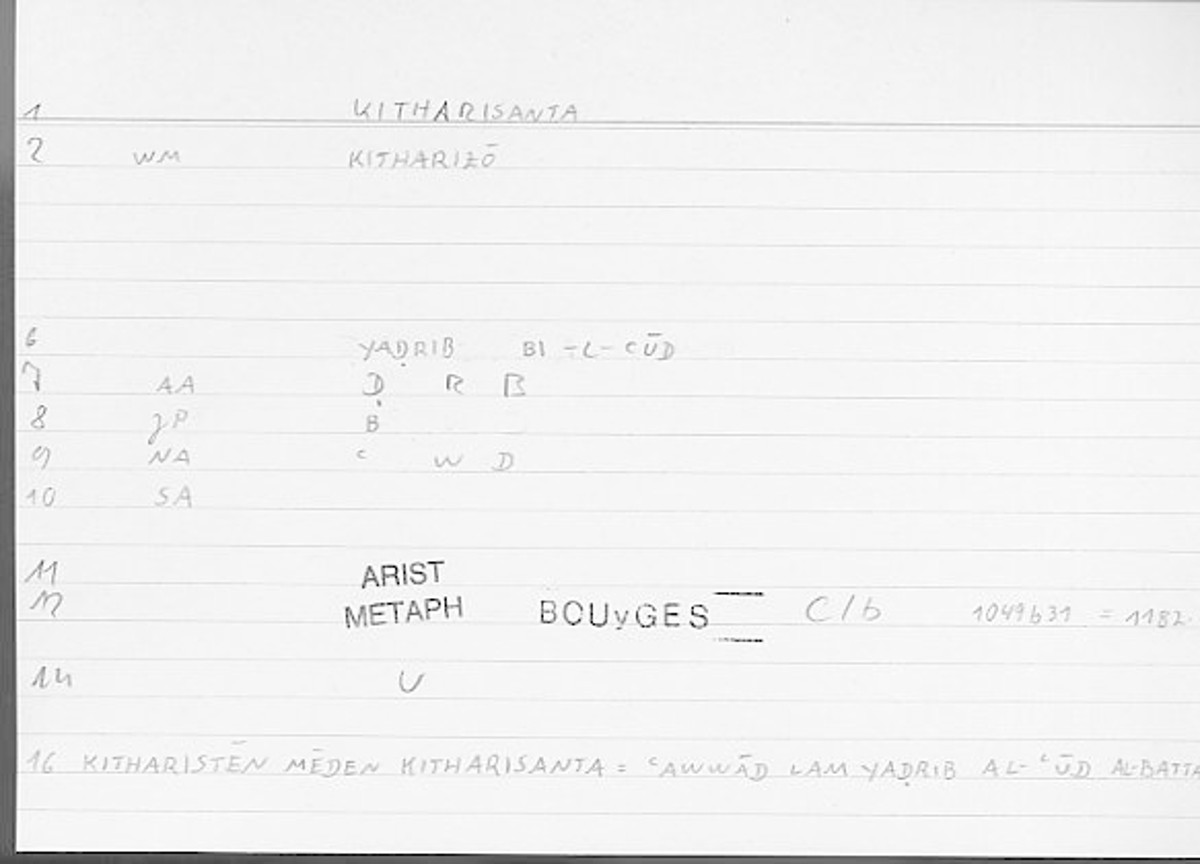 1 KITHARISANTA
2 WM KITHARIZŌ
6 YAḌRIB BI-L-cŪD
7 AA Ḍ R B
8 JP B
9 NA c W D
10 SA
11 ARIST
12 METAPH BOUyGES C/b 1049b31 = 1182.
14 U
16 KITHARISTĒN MĒDEN KITHARISANTA = cAWWĀD LAM YAḌRIB AL-cŪD AL-BATTA